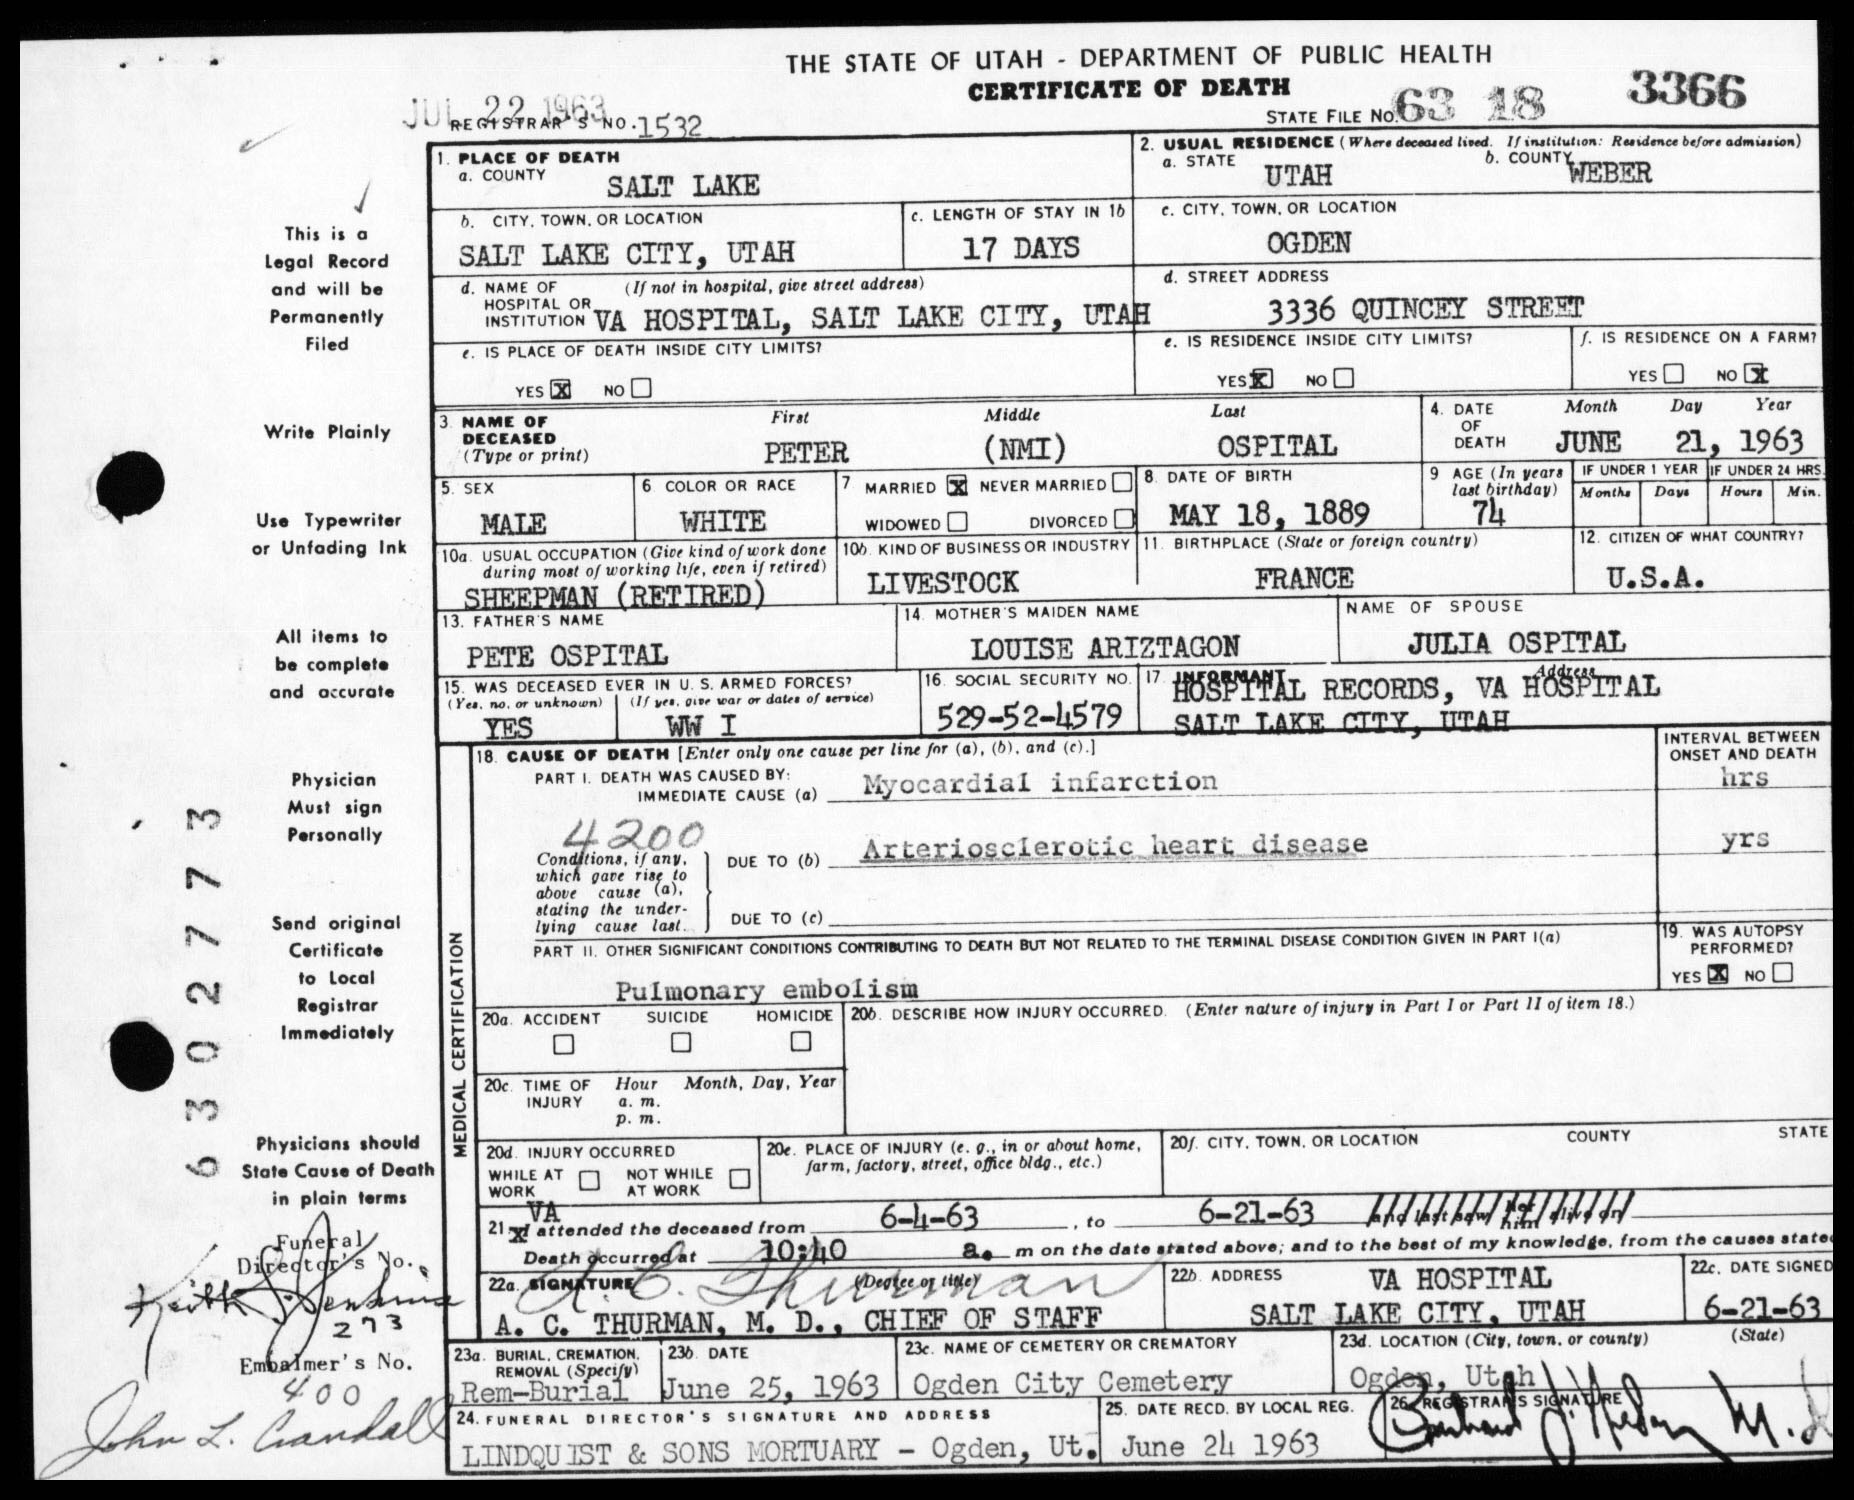 THE STATE OF UTAH - DEPARTMENT OF PUBLIC HEALTH
CERTIFICATE OF DEATH
JUL 22 1963
REGISTRAR'S NO. 1532
STATE FILE NO. 63 18 3366
1. PLACE OF DEATH
a. COUNTY SALT LAKE
2. USUAL RESIDENCE (Where deceased lived. If institution: Residence before admission)
a. STATE UTAH b. COUNTY WEBER
b. CITY, TOWN, OR LOCATION SALT LAKE CITY, UTAH
c. LENGTH OF STAY IN 1b 17 DAYS
c. CITY, TOWN, OR LOCATION OGDEN
d. NAME OF HOSPITAL OR INSTITUTION (If not in hospital, give street address) VA HOSPITAL, SALT LAKE CITY, UTAH
d. STREET ADDRESS 3336 QUINCEY STREET
e. IS PLACE OF DEATH INSIDE CITY LIMITS? YES X NO
e. IS RESIDENCE INSIDE CITY LIMITS? YES X NO
f. IS RESIDENCE ON A FARM? YES NO X
3. NAME OF DECEASED (Type or print) First PETER Middle (NMI) Last OSPITAL
4. DATE OF DEATH Month Day Year JUNE 21, 1963
5. SEX MALE
6 COLOR OR RACE WHITE
7 MARRIED X NEVER MARRIED WIDOWED DIVORCED
8. DATE OF BIRTH MAY 18, 1889
9 AGE (In years last birthday) 74
IF UNDER 1 YEAR Months Days IF UNDER 24 HRS. Hours Min.
10a. USUAL OCCUPATION (Give kind of work done during most of working life, even if retired) SHEEPMAN (RETIRED)
10b. KIND OF BUSINESS OR INDUSTRY LIVESTOCK
11. BIRTHPLACE (State or foreign country) FRANCE
12. CITIZEN OF WHAT COUNTRY? U.S.A.
13. FATHER'S NAME PETE OSPITAL
14. MOTHER'S MAIDEN NAME LOUISE ARIZTAGON
NAME OF SPOUSE JULIA OSPITAL
15. WAS DECEASED EVER IN U. S. ARMED FORCES? (Yes, no, or unknown) YES (If yes, give war or dates of service) WW I
16. SOCIAL SECURITY NO. 529-52-4579
17. INFORMANT Address HOSPITAL RECORDS, VA HOSPITAL
SALT LAKE CITY, UTAH
MEDICAL CERTIFICATION
18. CAUSE OF DEATH [Enter only one cause per line for (a), (b), and (c).]
INTERVAL BETWEEN ONSET AND DEATH
PART I. DEATH WAS CAUSED BY:
IMMEDIATE CAUSE (a) Myocardial infarction hrs
4200
Conditions, if any, which gave rise to above cause (a), stating the underlying cause last.
DUE TO (b) Arteriosclerotic heart disease yrs
DUE TO (c)
PART II. OTHER SIGNIFICANT CONDITIONS CONTRIBUTING TO DEATH BUT NOT RELATED TO THE TERMINAL DISEASE CONDITION GIVEN IN PART I(a)
Pulmonary embolism
19. WAS AUTOPSY PERFORMED? YES X NO
20a. ACCIDENT SUICIDE HOMICIDE
20b. DESCRIBE HOW INJURY OCCURRED. (Enter nature of injury in Part I or Part II of item 18.)
20c. TIME OF INJURY Hour a. m. p. m. Month, Day, Year
20d. INJURY OCCURRED WHILE AT WORK NOT WHILE AT WORK
20e. PLACE OF INJURY (e. g., in or about home, farm, factory, street, office bldg., etc.)
20f. CITY, TOWN, OR LOCATION COUNTY STATE
21. VA X I attended the deceased from 6-4-63, to 6-21-63 and last saw him alive on
Death occurred at 10:40 a. m on the date stated above; and to the best of my knowledge, from the causes stated
22a. SIGNATURE (Degree or title) A. C. Thurman
A. C. THURMAN, M. D., CHIEF OF STAFF
22b. ADDRESS VA HOSPITAL
SALT LAKE CITY, UTAH
22c. DATE SIGNED 6-21-63
23a. BURIAL, CREMATION, REMOVAL (Specify) Rem-Burial
23b. DATE June 25, 1963
23c. NAME OF CEMETERY OR CREMATORY Ogden City Cemetery
23d. LOCATION (City, town, or county) (State) Ogden, Utah
24. FUNERAL DIRECTOR'S SIGNATURE AND ADDRESS
LINDQUIST & SONS MORTUARY - Ogden, Ut.
25. DATE RECD. BY LOCAL REG. June 24 1963
26. REGISTRAR'S SIGNATURE
This is a
Legal Record
and will be
Permanently
Filed
Write Plainly
Use Typewriter
or Unfading Ink
All items to
be complete
and accurate
Physician
Must sign
Personally
Send original
Certificate
to Local
Registrar
Immediately
Physicians should
State Cause of Death
in plain terms
6302773
Funeral
Director's No.
Keith J. Jenkins
273
Embalmer's No.
400
John L. Crandall